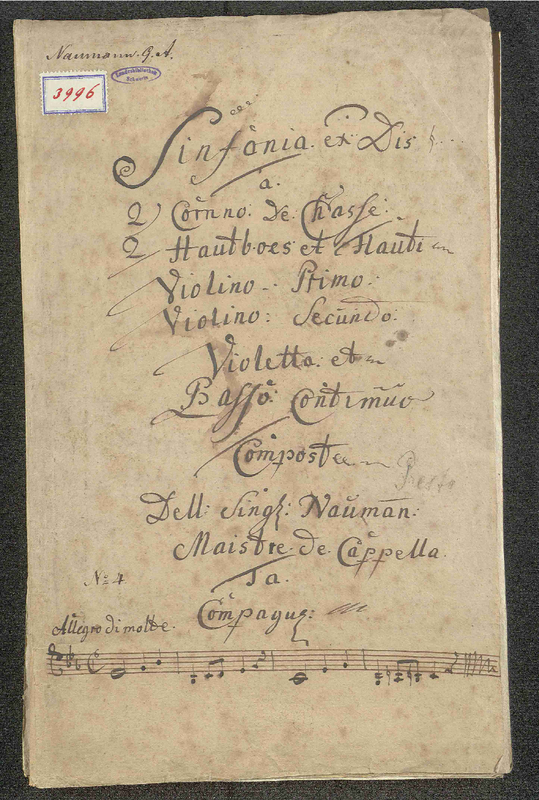 Naumann. G. A.
Landesbibliothek
Schwerin
3996
Sinfonia. ex: Dis
a.
2 Cornno. De Chasse.
2 Hautboes et Flauti
Violino Primo:
Violino: Secundo:
Violetta. et
Basso Continuo
Composte
Dell: Singl: Nauman:
Maistre. de. Cappella.
Ja.
No: 4
Compagu:
Allegro di molte.